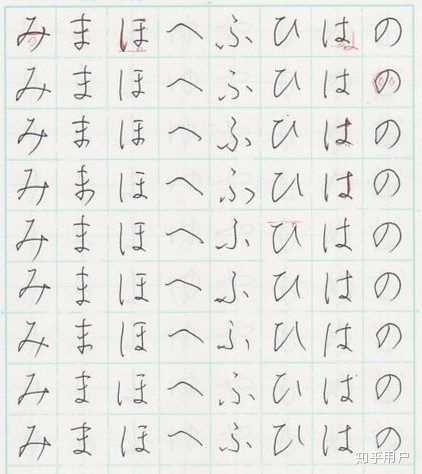 ののののののののの
ははははははははは
ひひひひひひひひひ
ふふふふふふふふふ
へへへへへへへへへ
ほほほほほほほほほ
ままままままままま
みみみみみみみみみ
知乎用户